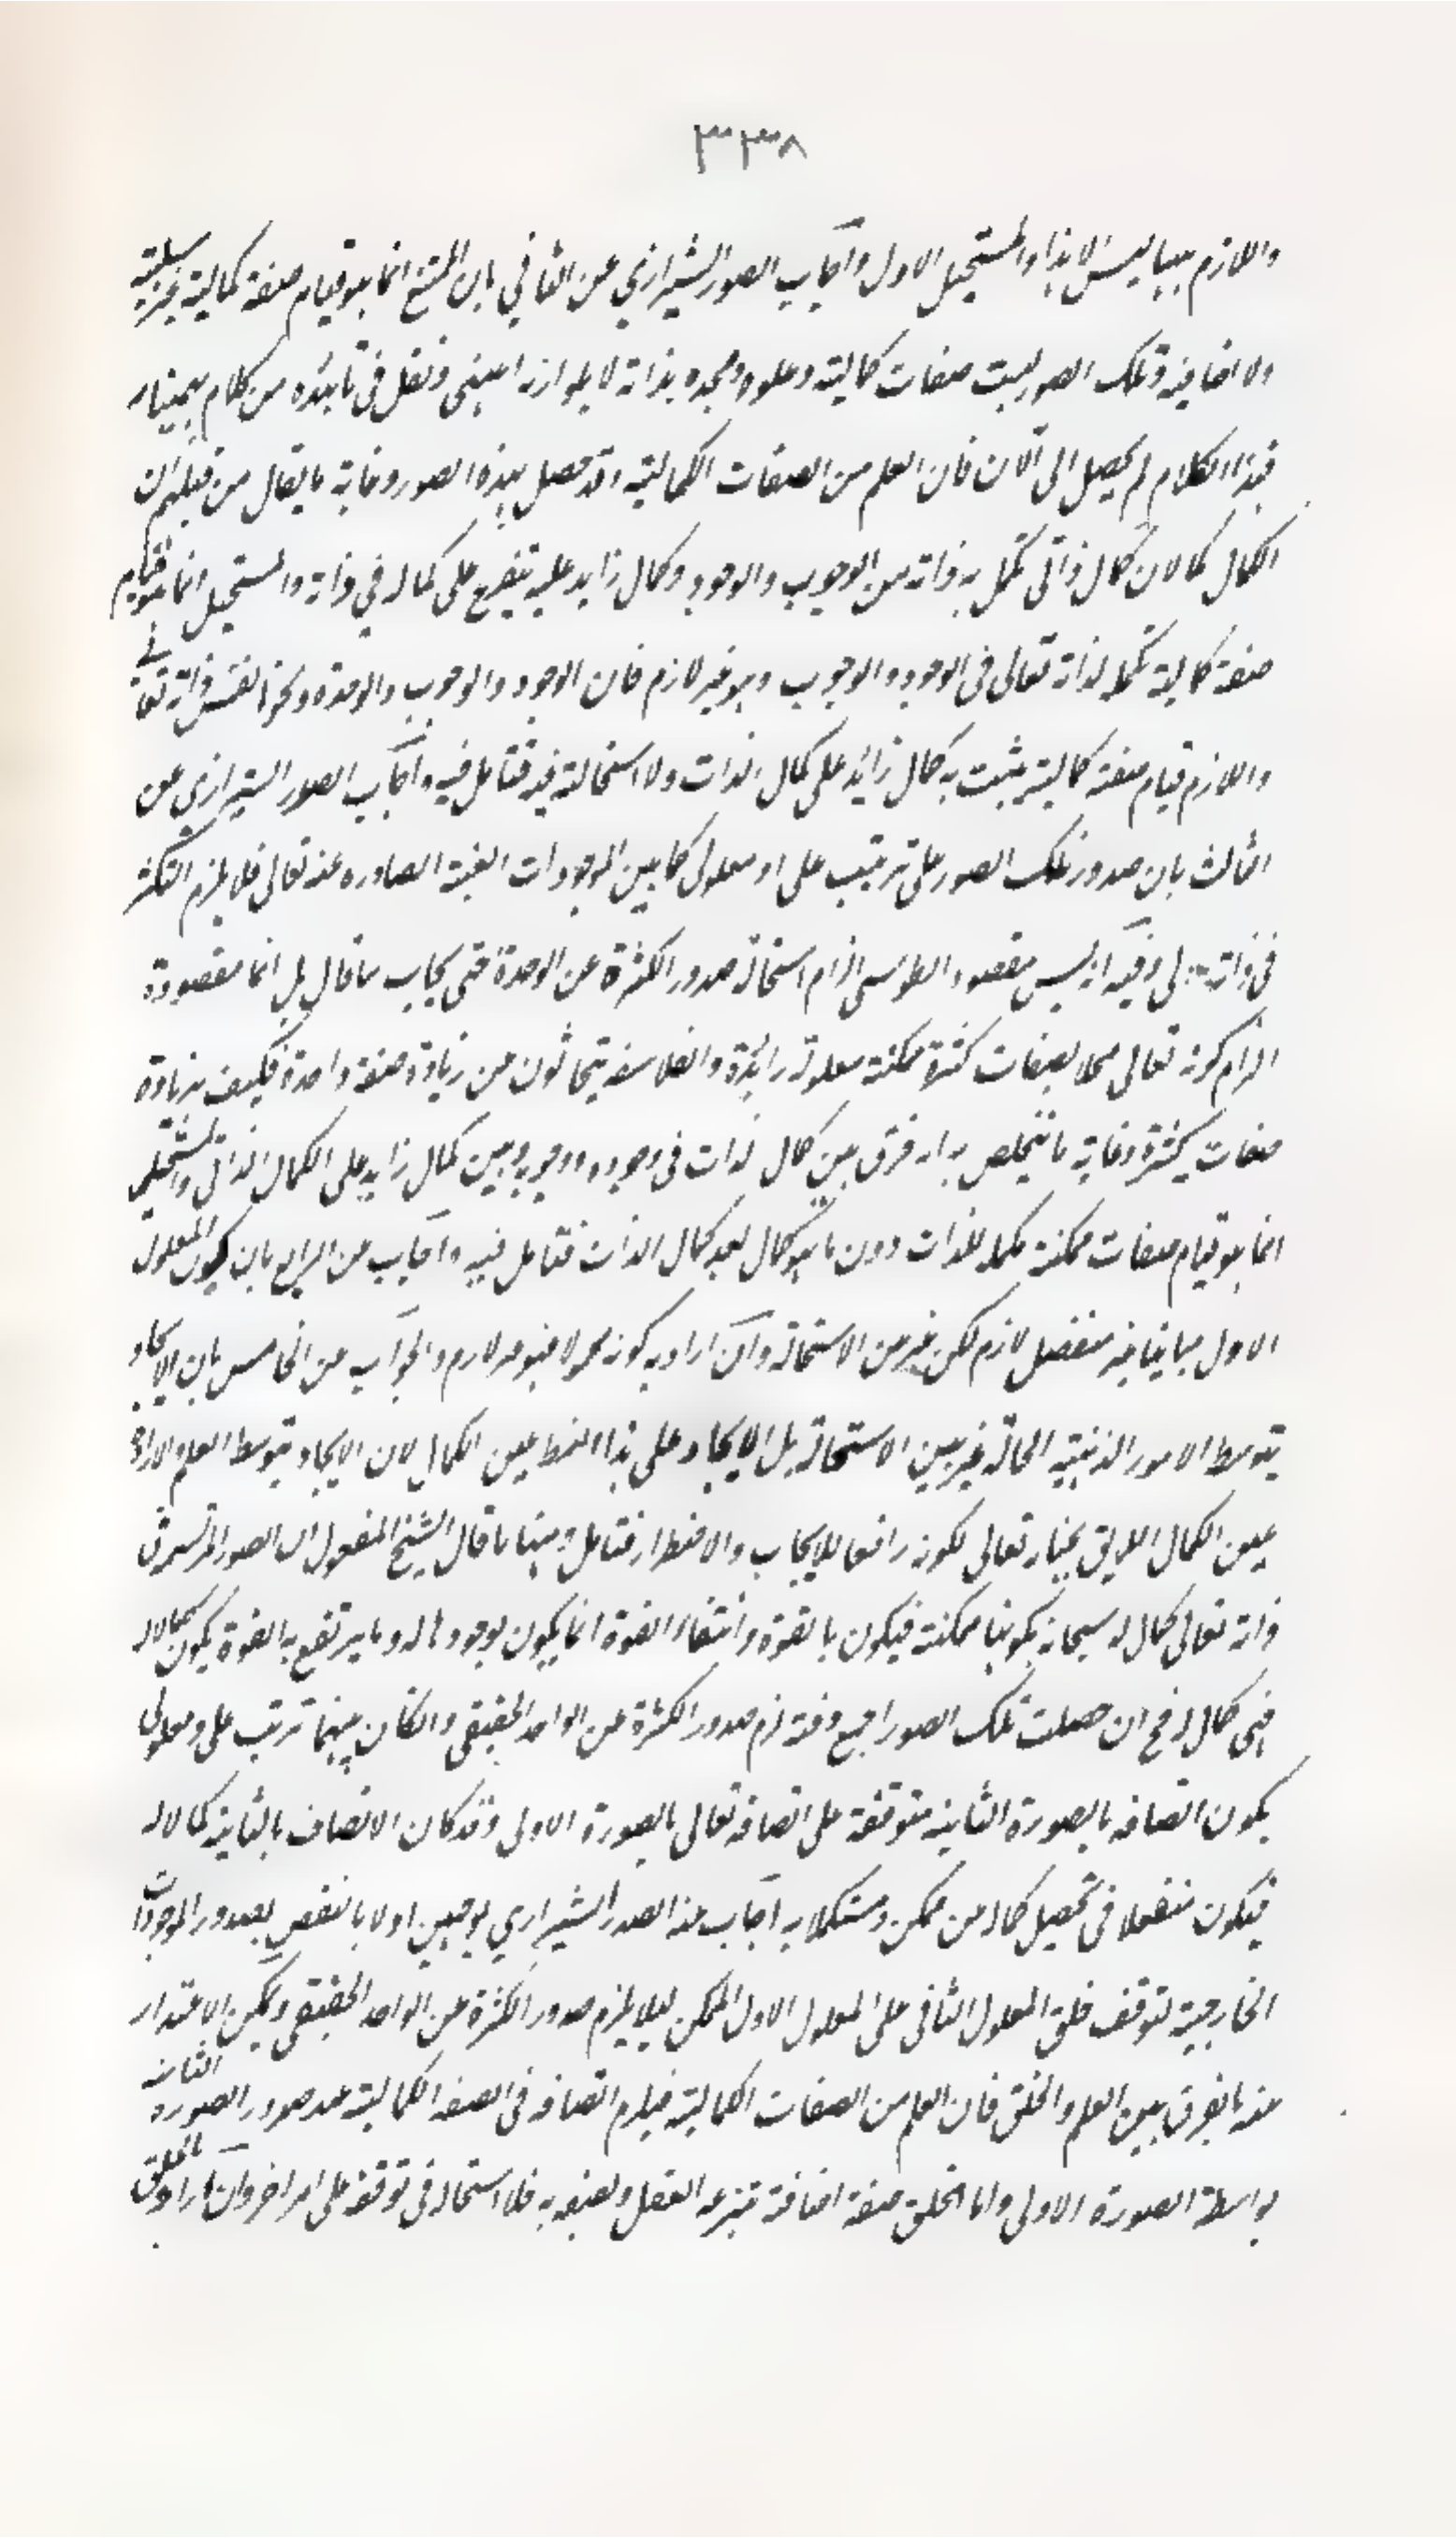 ٣٣٨
واللازم ههنا ليس الا هذا والمستحيل الاول وأجاب الصدر الشيرازي عن الثاني بان الممتنع انما هو قيام صفة كمالية غير سلبية
ولا اضافية وتلك الصور ليست صفات كمالية وعلوه ومجده بذاته لا بلوازنه انتهى ونقل في تائيده من كلام بهمنيار
فهذا الكلام لم يحصل الى الآن فان العلم من الصفات الكمالية وقد حصل بهذه الصور وغاية ما يقال من قبلهم ان
الكمال كمالان كمال ذاتي تكمل به ذاته من الوجوب والوجود وكمال زايد عليه يتفرع على كماله في ذاته والمستحيل انما هو قيام
صفة كمالية مكملة لذاته تعالى في الوجود والوجوب وهو غير لازم فان الوجود والوجوب والوحدة ونحوها نفس ذاته تعالى
واللازم قيام صفة كمالية يثبت به كمال زائد على كمال الذات ولا استحالة فيه فتامل فيه وأجاب الصدر الشيرازي عن
الثالث بان صدور تلك الصور على ترتيب على ومعلولي كما بين الموجودات العينية الصادره عنه تعالى فلا يلزم التكثر
في ذاته تعالى وفيه انه ليس مقصود الطوسي الزام استحالة صدور الكثرة عن الوحدة حتى يجاب بما قال بل انما مقصودة
الزام كونه تعالى محلا لصفات كثيرة ممكنة معلولة زائدة والفلاسفة يتحاشون من زيادة صفة واحدة فكيف بزيادة
صفات كثيرة وغاية ما يتخلص به انه فرق بين كمال الذات في وجوده ووجوبه وبين كمال زايد على الكمال الذاتي والمستحيل
انما هو قيام صفات ممكنة مكملة للذات دون ما هو كمال بعد كمال الذات فتامل فيه وأجاب عن الرابع بان كون المعلول
الاول مباينا غير منفصل لازم لكن غير من الاستحالة وان اراد به كونه محمولا فهو غير لازم والجواب عن الخامس بان الايجاد
بتوسط الامور الذهنية الحالة غير بين الاستحالة بل الايجاد على هذا النمط عين الكمال لان الايجاد بتوسط العلم والارادة
عين الكمال اللايق بجنابه تعالى لكونه رافعا للايجاب والاضطرار فتامل ومنها ما قال الشيخ المقتول ان الصور المرتسمة في
ذاته تعالى كمال له سبحانه لكونها ممكنة فيكون بالقوة وانتفاء القوة انما يكون بوجودها له وما يرتفع به القوة يكون كمالا له
فهي كمال له فح ان حصلت تلك الصور اجمع دفعة لزم صدور الكثرة عن الواحد الحقيقي وان كان بينهما ترتب على ومعلولي
يكون اتصافه بالصورة الثانية متوقفة على اتصافه تعالى بالصورة الاولى وقد كان الاتصاف بالثانية كمالا له
فيكون منفعلا في تحصيل كماله من ممكن ومستكملا به أجاب عنه الصدر الشيرازي بوجهين اولا بالنقض بصدور الموجودات
الخارجية لتوقف خلق المعلول الثاني على المعلول الاول الممكن ليلا يلزم صدور الكثرة عن الواحد الحقيقي ويمكن الاعتذار
عنه بالفرق بين العلم والخلق فان العلم من الصفات الكمالية فيلزم اتصافه في الصفة الكمالية عند صدور الصورة الثانية
بواسطة الصورة الاولى واما الخلق صفة اضافة تنتزعه العقل ويصفه به فلا استحالة في توقفه على امر اخر وان اراد بالخلق